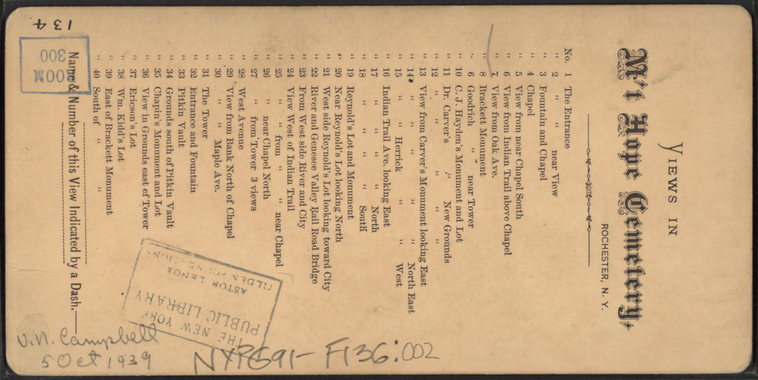 VIEWS IN
M't Hope Cemetery,
ROCHESTER, N. Y.
No. 1 The Entrance
" 2 " " near View
" 3 Fountain and Chapel
" 4 Chapel
" 5 View from near Chapel South
" 6 View from Indian Trail above Chapel
" 7 View from Oak Ave.
" 8 Brackett Monument
" 6 Goodrich " near Tower
" 10 C. J. Hayden's Monument and Lot
" 11 Dr. Carver's " New Grounds
" 12 " " " "
" 13 View from Carver's Monument looking East
" 14 " " " " North East
" 15 " Herrick " " West
" 16 Indian Trail Ave. looking East
" 17 " " " " North
" 18 " " " " South
" 19 Reynold's Lot and Monument
" 20 Near Reynold's Lot looking North
" 21 West side Reynold's Lot looking toward City
" 22 River and Genesee Valley Rail Road Bridge
" 23 From West side River and City
" 24 View West of Indian Trail
" 25 " from " near Chapel
" 26 " near Chapel North
" 27 " from Tower 3 views
" 28 West Avenue
" 29 View from Bank North of Chapel
" 30 " " Maple Ave.
" 31 The Tower
" 32 Entrance and Fountain
" 33 Pitkin Vault
" 34 Grounds south of Pitkin Vault
" 35 Chapin's Monument and Lot
" 36 View in Grounds east of Tower
" 37 Ericson's Lot
" 38 Wm. Kidd's Lot
" 39 East of Brackett Monument
" 40 South of " "
Name & Number of this View Indicated by a Dash.
134
ROOM
300
THE NEW YORK
PUBLIC LIBRARY
ASTOR LENOX
TILDEN FOUNDATION
V.N. Campbell
5 Oct 1939
NYPG91-F136:002